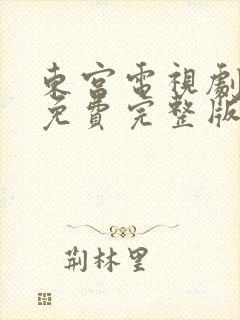 東宮電視劇
免費完整版
荆林里